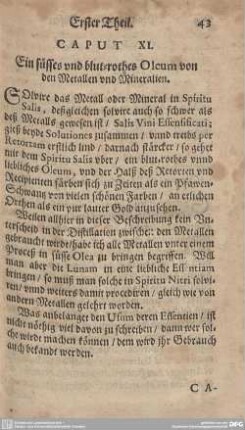 Erster Theil. 43
CAPUT XL.
Ein süsses vnd blut-rothes Oleum von
den Metallen vnd Mineralien.
SOlvire das Metall oder Mineral in Spiritu
Salis, deßgleichen solvire auch so schwer als
deß Metalls gewesen ist / Salis Vini Essentificati;
gieß beyde Solutiones zusammen / vnnd treibs per
Retortam erstlich lind / darnach stärcker / so gehet
mit dem Spiritu Salis vber / ein blut-rothes vnnd
liebliches Oleum, vnd der Halß deß Retorten vnd
Recipienten färben sich zu Zeiten als ein Pfawen-
Schwang von vielen schönen Farben / an etlichen
Orthen als ein pur lauter Gold anzusehen.
Weilen allhier in dieser Beschreibung kein Vn-
terscheid in der Distillation zwischen den Metallen
gebraucht wirde / habe ich alle Metallen vnter einem
Proceß in süsse Olea zu bringen begreiffen. Will
man aber die Lunam in eine liebliche Essentiam
bringen / so muß man solche in Spiritu Nitri solvi-
ren / vnnd weiters damit procediren / gleich wie von
andern Metallen gelehrt worden.
Was anbelanget den Usum deren Essentien / ist
nicht nöthig viel davon zu schreiben / dann wer sol-
che wirde machen können / dem wird jhr Gebrauch
auch bekandt werden.
CA-